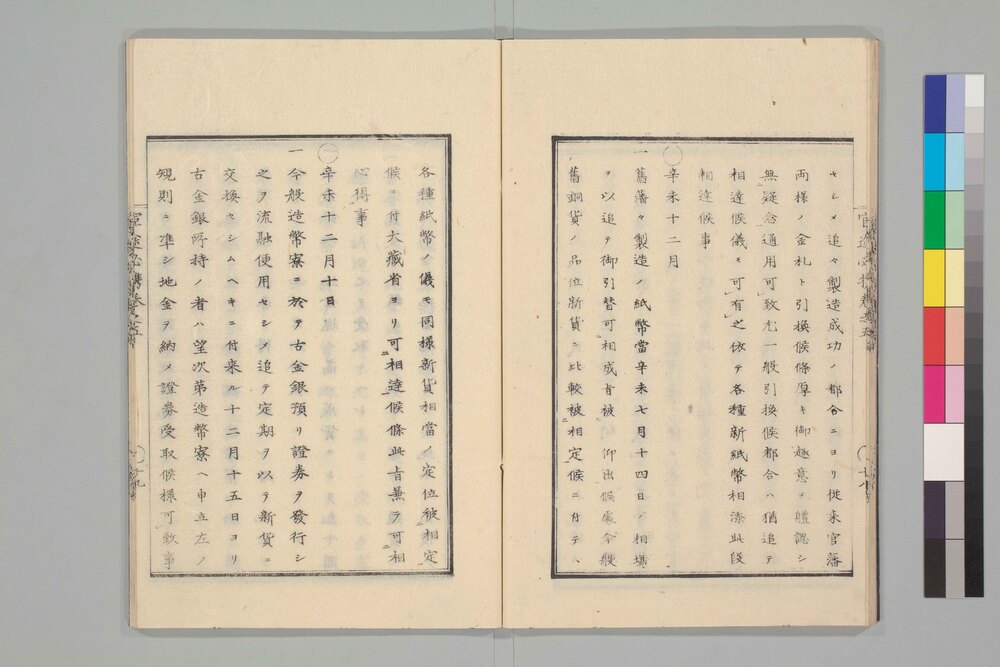 セシメ追々製造成功ノ都合ニヨリ従来官藩
両様ノ金札ト引換候條厚キ御趣意ヲ軆認シ
無疑念通用可致尤一般引換候都合ハ猶追テ
相達候儀モ可有之依テ各種新紙幣相添此段
相達候事
○辛未十二月
一舊藩々製造ノ紙幣當辛未七月十四日ノ相場
ヲ以追テ御引替可相成旨被仰出候處今般
舊銅貨ノ品位新貨ニ比較被相定候ニ付テハ
各種紙幣ノ儀モ同様新貨相當ノ定位被相定
候ニ付大藏省ヨリ可相達候條此旨兼テ可相
心得事
○辛未十二月十日
一今般造幣寮ニ於テ古金銀預リ證券ヲ發行シ
之ヲ流融便用セシメ追テ定期ヲ以テ新貨ニ
交換セシムヘキニ付来ル十二月十五日ヨリ
古金銀所持ノ者ハ望次第造幣寮ヘ申立左ノ
規則ニ準シ地金ヲ納メ證券受取候様可致事